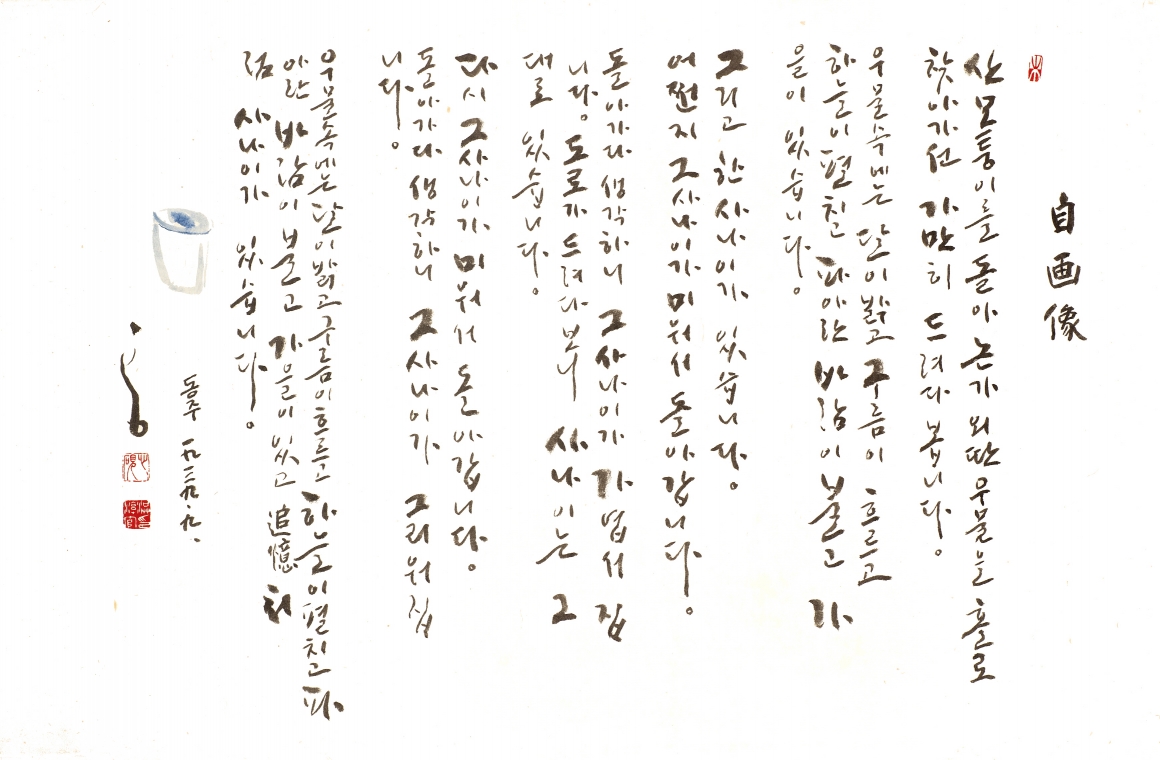 自画像
산모퉁이를 돌아 논가 외딴 우물을 홀로
찾아가선 가만히 드려다 봅니다。
우물속에는 달이 밝고 구름이 흐르고
하늘이 펼친 파아란 바람이 불고 가
을이 있습니다。
그리고 한 사나이가 있습니다。
어쩐지 그 사나이가 미워서 돌아갑니다。
돌아가다 생각하니 그 사나이가 가엽서 집
니다。 도로가 드려다 보니 사나이는 그
대로 있습니다。
다시 그 사나이가 미워서 돌아갑니다。
돌아가다 생각하니 그 사나이가 그리워집
니다。
우물속에는 달이 밝고 구름이 흐르고 하늘이 펼치고 파
아란 바람이 불고 가을이 있고 追憶처
럼 사나이가 있습니다。
동주 一九三九.九.